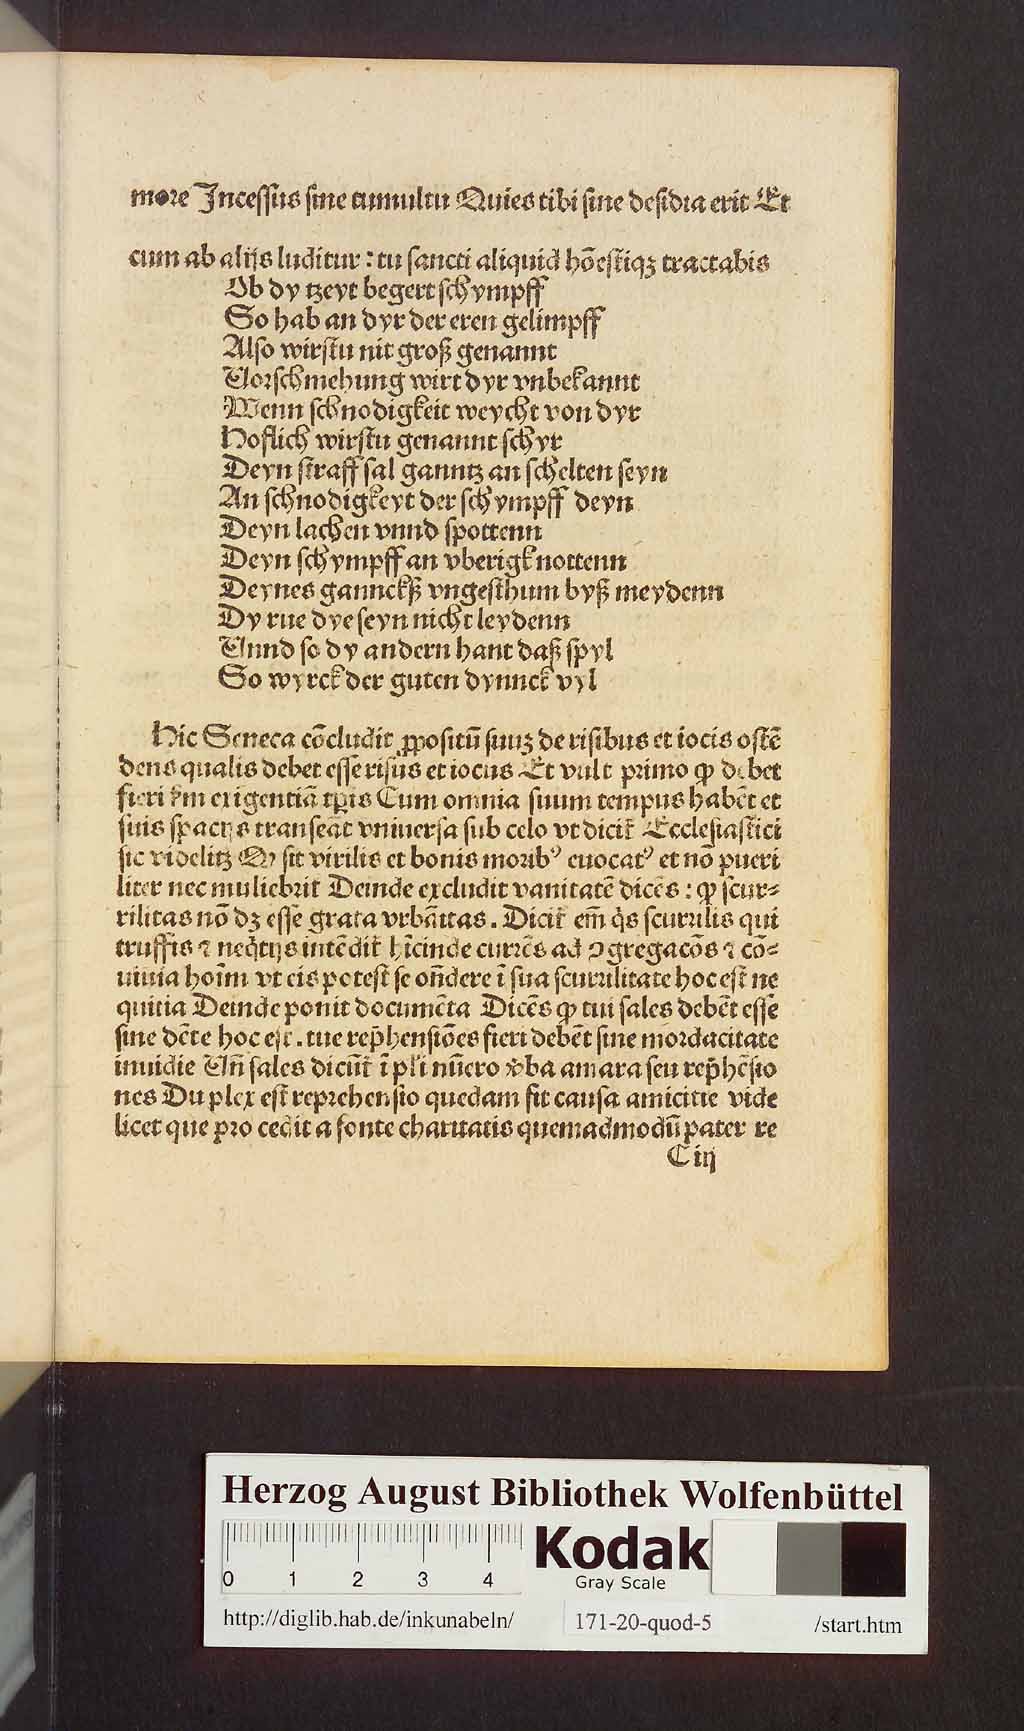 more Incessus sine tumultu Quies tibi sine desidia erit Et
cum ab alijs luditur : tu sancti aliquid hõestiqꝫ tractabis
Ob dy tzeyt begert schympff
So hab an dyr der eren gelimpff
Also wirstu nit groß genannt
Vorschmehung wirt dyr vnbekannt
Wenn schnodigkeit weycht von dyr
Hoflich wirstu genannt schyr
Deyn straff sal ganntz an schelten seyn
An schnodigkeyt der schympff deyn
Deyn lachen vnnd spottenn
Deyn schympff an vberigk nottenn
Deynes gannckß vngesthum byß meydenn
Dy rue dye seyn nicht leydenn
Vnnd so dy andern hant daß spyl
So wyrck der guten dynnck vyl
Hic Seneca cõcludit ꝓpositũ suuꝫ de risibus et iocis ostẽ
dens qualis debet esse risus et iocus Et vult primo ꝙ debet
fieri ẜm exigentiã tꝑis Cum omnia suum tempus habẽt et
suis spacijs transeãt vniuersa sub celo vt dicit̃ Ecclesiastici
sic videlitꝫ Qꝫ sit virilis et bonis moribꝰ euocatꝰ et nõ pueri
liter nec muliebrit̃ Deinde excludit vanitatẽ dicẽs : ꝙ scur-
rilitas nõ dꝫ esse grata vrbãitas. Dicit̃ em̃ q̃s scurrilis qui
truffis ⁊ neq̃tijs intẽdit̃ hĩcinde currẽs ad ꝯgregacões ⁊ cõ-
uiuia hoĩm vt eis potest se oñdere ĩ sua scurrilitate hoc est ne
quitia Deinde ponit documẽta Dicẽs ꝙ tui sales debẽt esse
sine dẽte hoc est. tue rep̃hensiões fieri debẽt sine mordacitate
inuidie Vñ sales dicũt̃ ĩ pl̃i nũero v̓ba amara seu rep̃hẽsio
nes Duplex est reprehensio quedam fit causa amicitie vide
licet que pro cedit a fonte charitatis quemadmodũ pater re
C iij
Herzog August Bibliothek Wolfenbüttel
0 1 2 3 4
Kodak
Gray Scale
http://diglib.hab.de/inkunabeln/ 171-20-quod-5 /start.htm